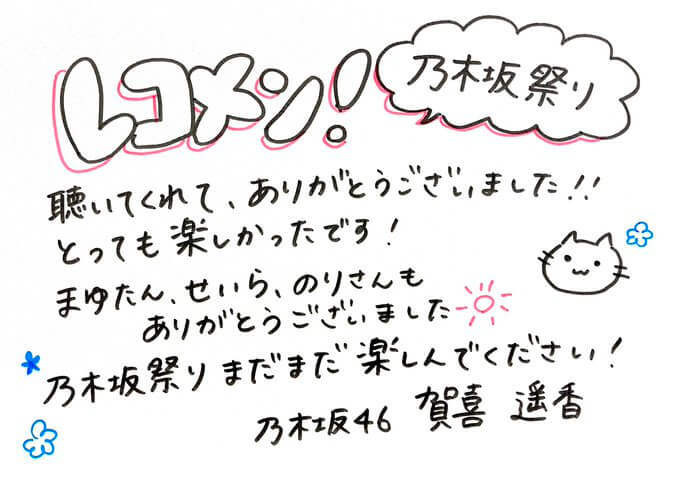 レコメン!
乃木坂祭り
聴いてくれて、ありがとうございました!!
とっても楽しかったです!
まゆたん、せいら、のりさんも
ありがとうございました
乃木坂祭りまだまだ楽しんでください!
乃木坂46 賀喜 遥香